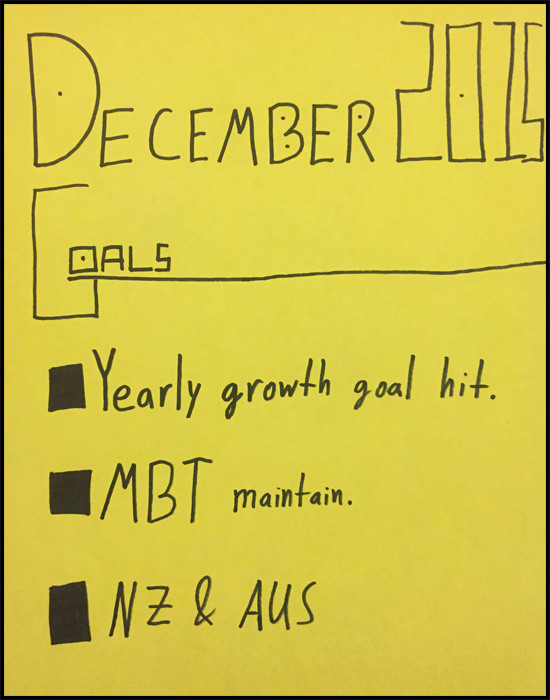 DECEMBER 2015
GOALS
Yearly growth goal hit.
MBT maintain.
NZ & AUS